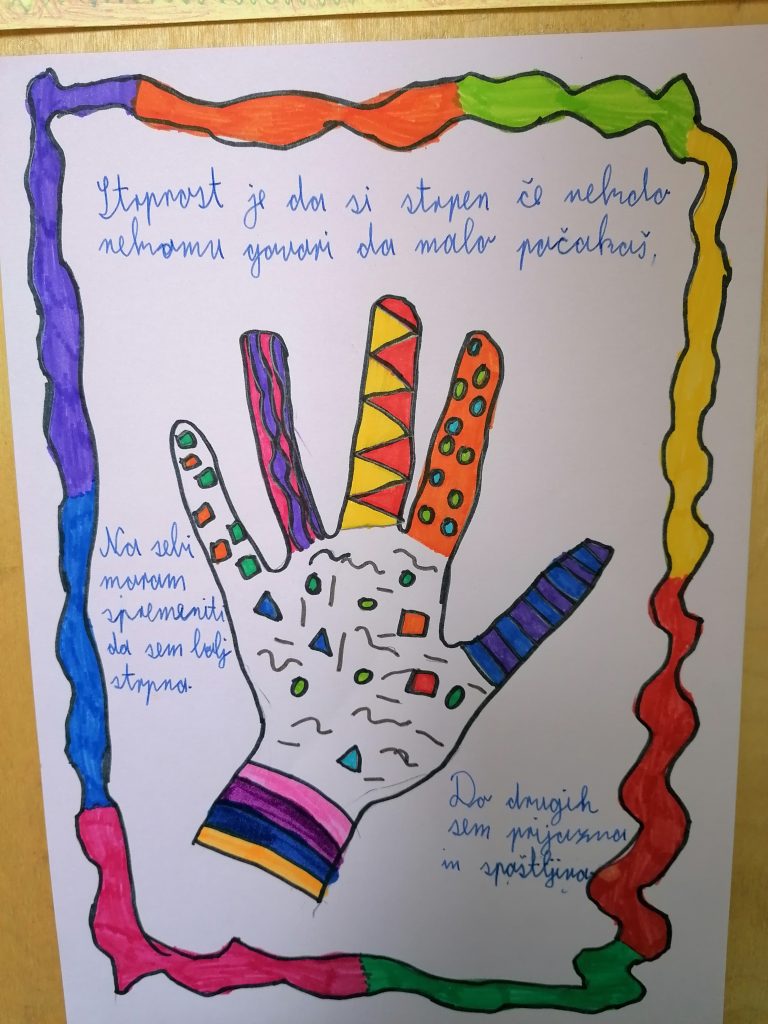 Strpnost je da si strpen če nekdo
nekomu govori da malo počakaš.
Na sebi
moram
spremeniti
da sem bolj
strpna.
Do drugih
sem prijazna
in spoštljiva